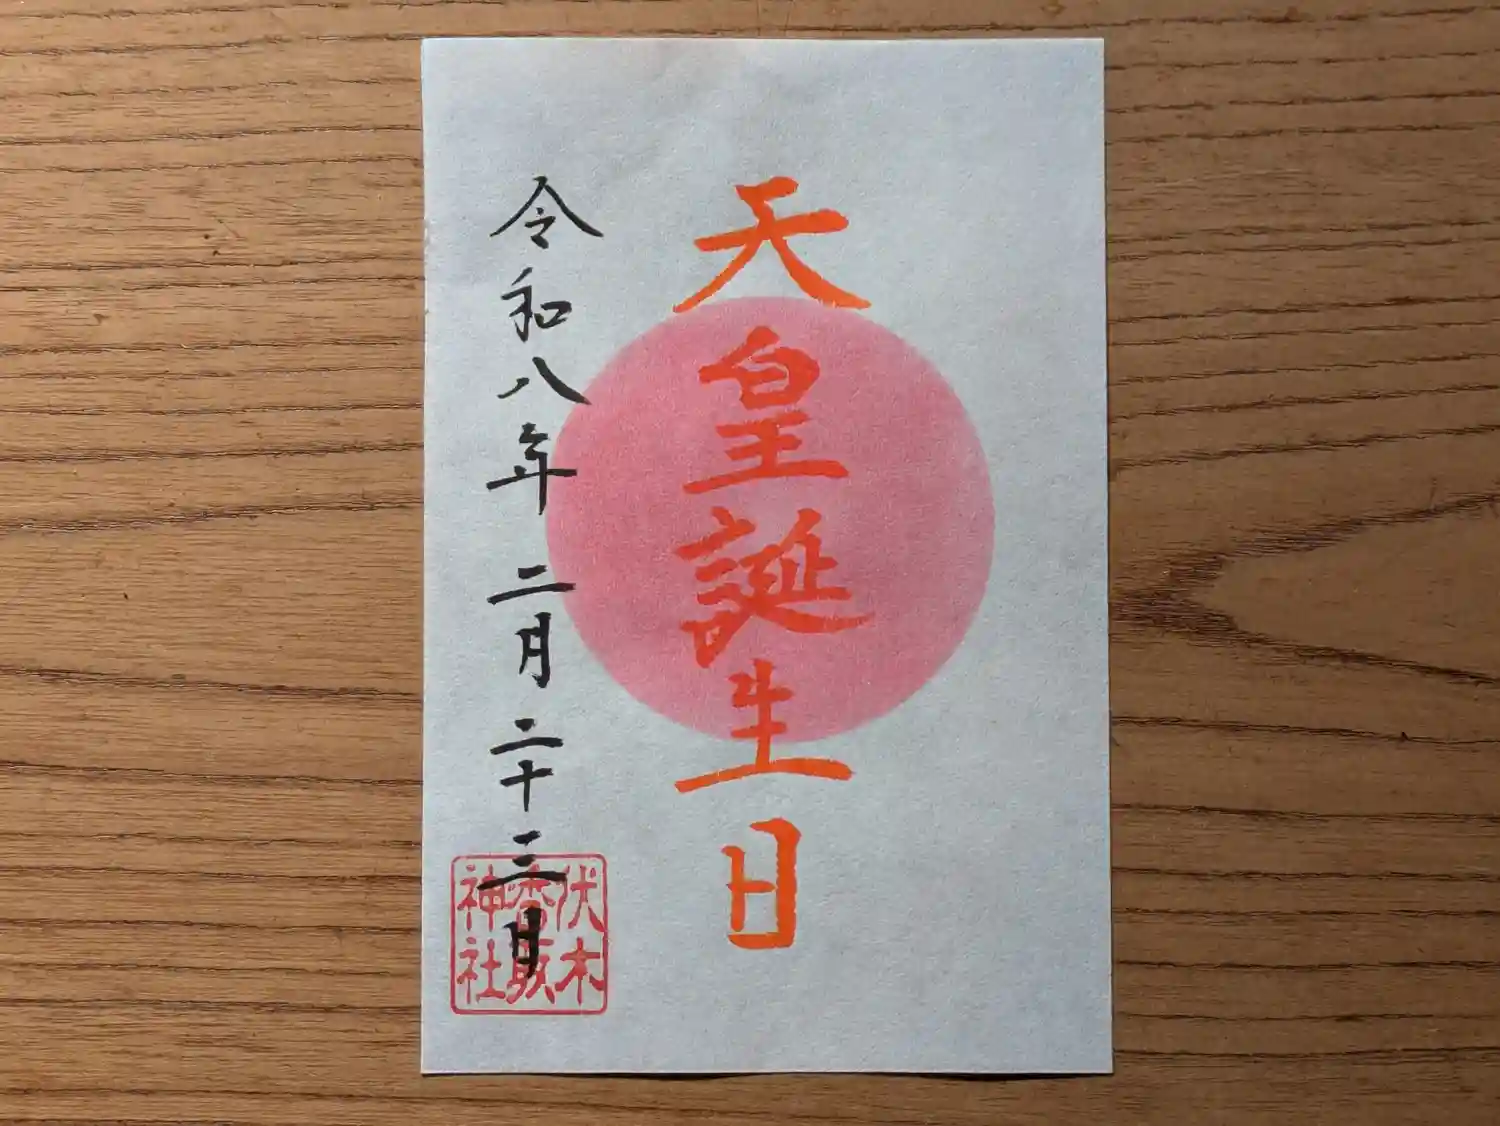 天皇誕生日
令和八年二月二十三日
伏木
香取
神社